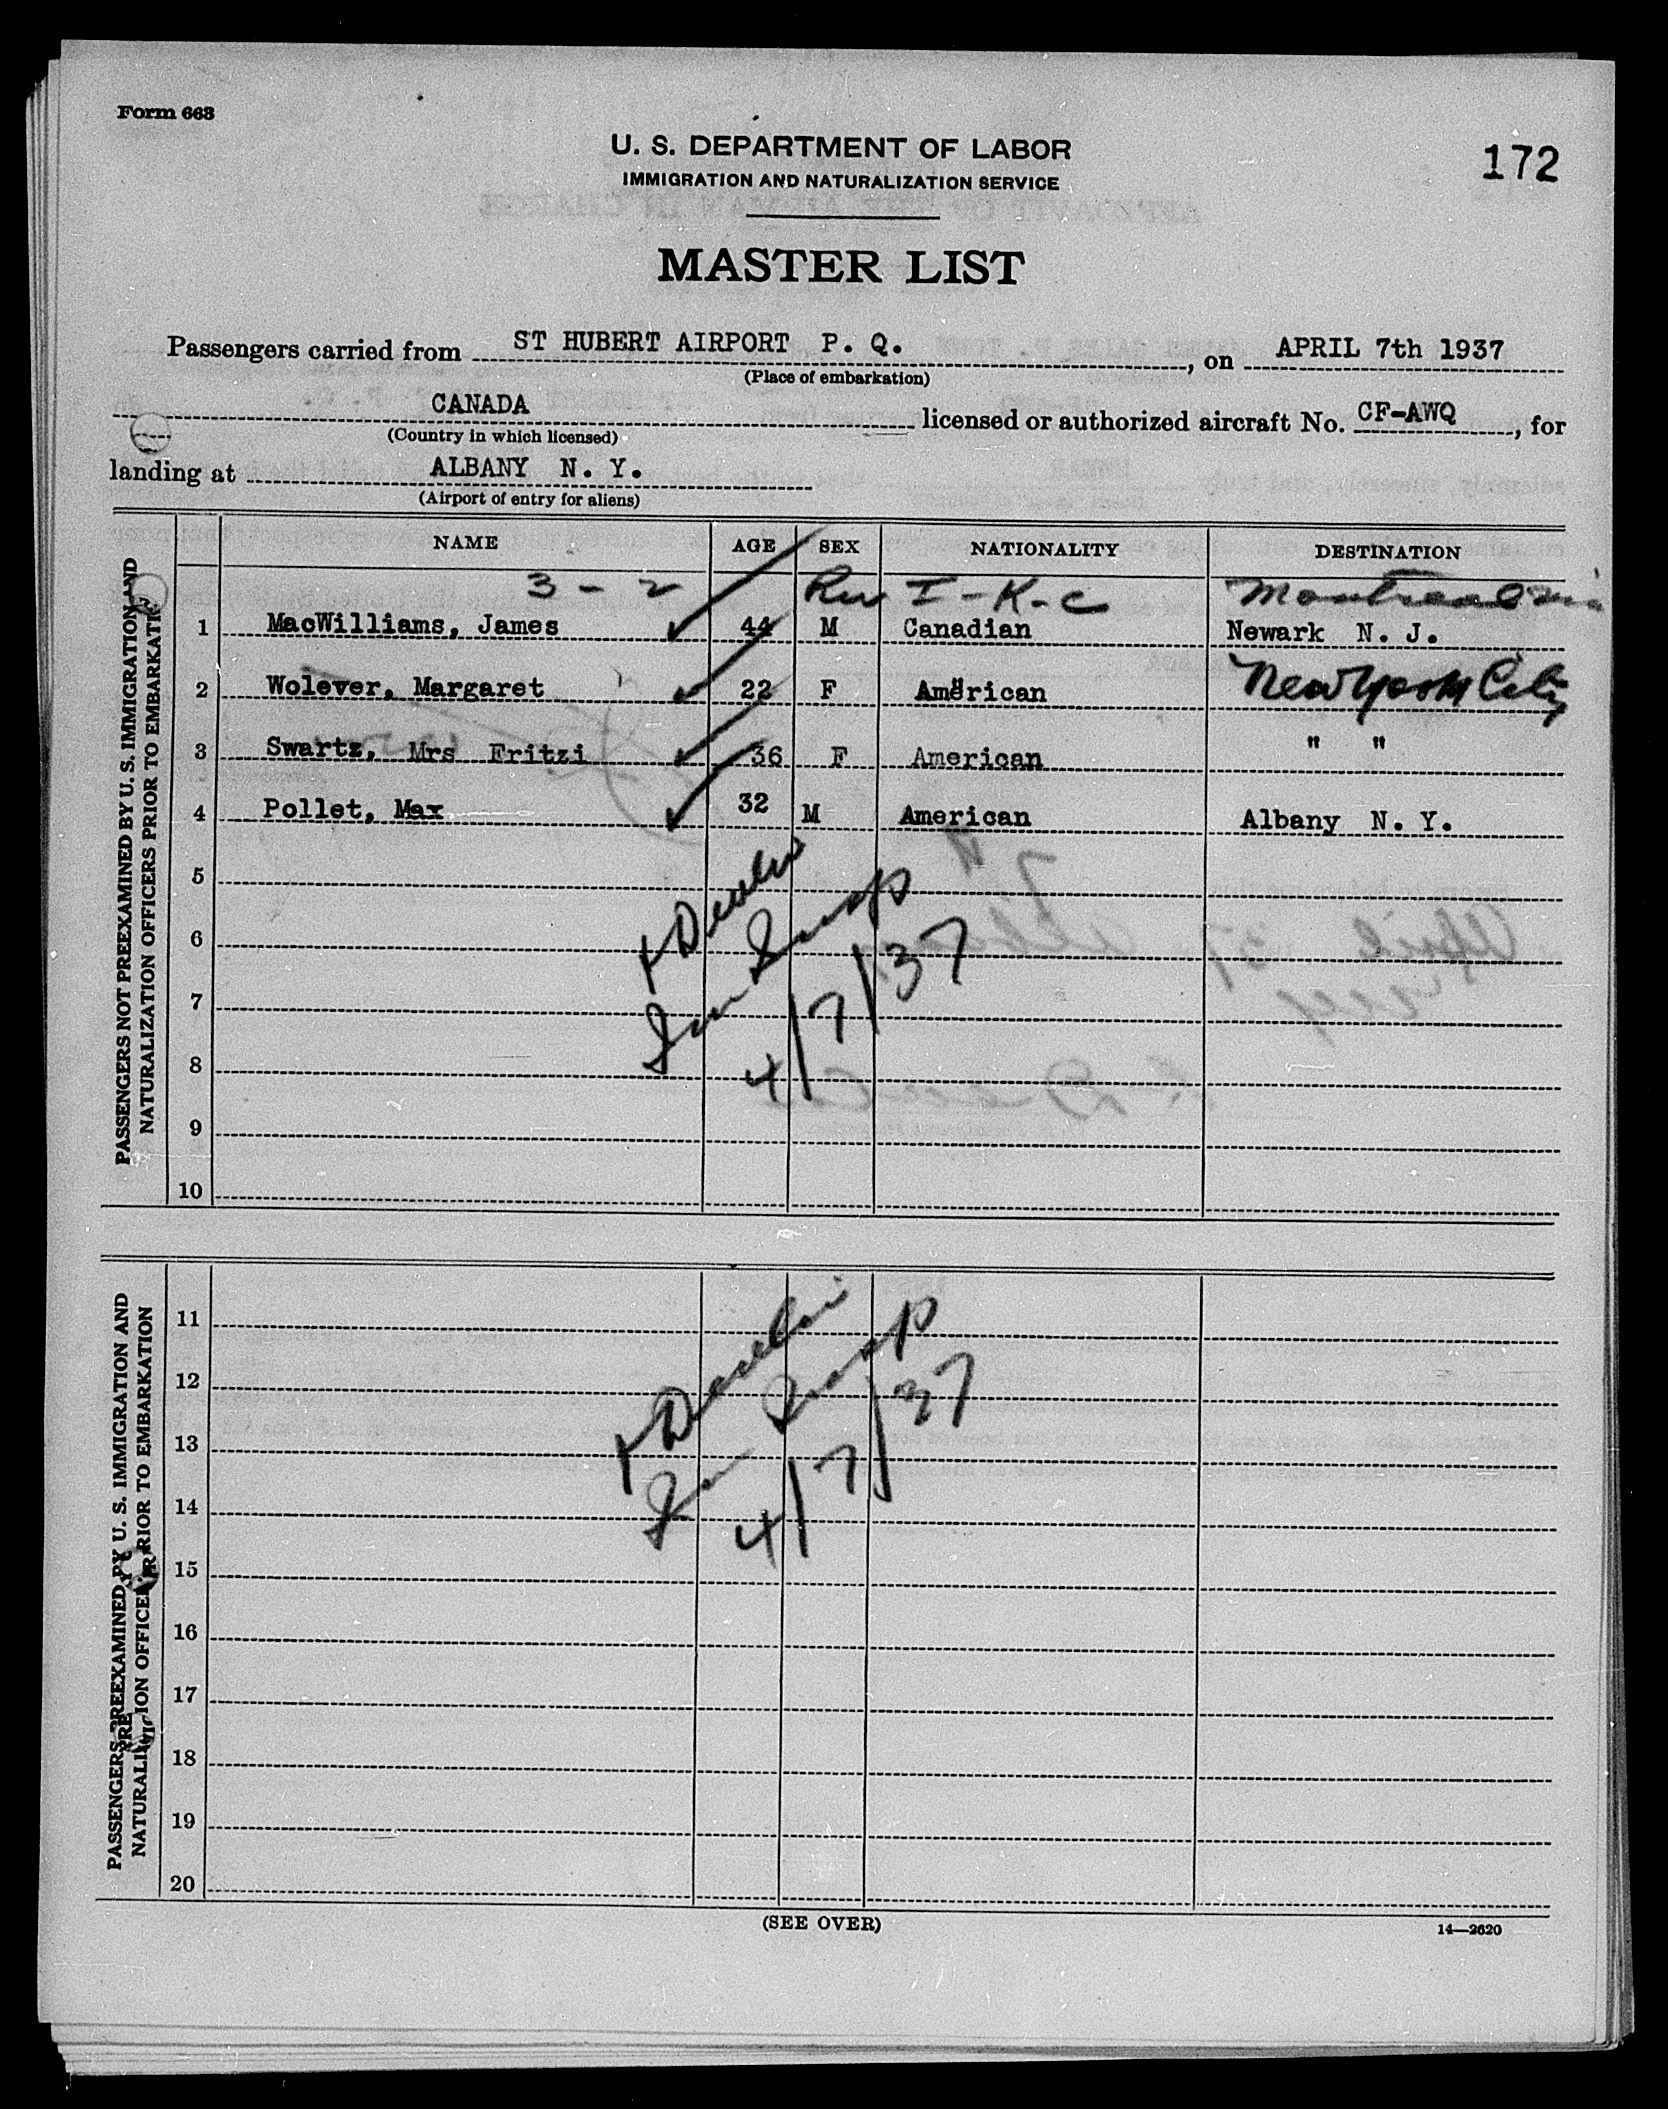 Form 663
U. S. DEPARTMENT OF LABOR
IMMIGRATION AND NATURALIZATION SERVICE
172
MASTER LIST
Passengers carried from ST HUBERT AIRPORT P. Q., on APRIL 7th 1937
(Place of embarkation)
CANADA licensed or authorized aircraft No. CF-AWQ, for
(Country in which licensed)
landing at ALBANY N. Y.
(Airport of entry for aliens)
NAME AGE SEX NATIONALITY DESTINATION
3 - 2 I - K - C Montreal via
1 MacWilliams, James 44 M Canadian Newark N. J.
2 Wolever, Margaret 22 F American New York City
3 Swartz, Mrs Fritzi 36 F American " "
4 Pollet, Max 32 M American Albany N. Y.
5
6
7
8
9
10
PASSENGERS NOT PREEXAMINED BY U. S. IMMIGRATION AND
NATURALIZATION OFFICERS PRIOR TO EMBARKATION
Imm Insp
4/7/37
11
12
13
14
15
16
17
18
19
20
PASSENGERS PREEXAMINED BY U. S. IMMIGRATION AND
NATURALIZATION OFFICERS PRIOR TO EMBARKATION
Imm Insp
4/7/37
(SEE OVER)
14—2620